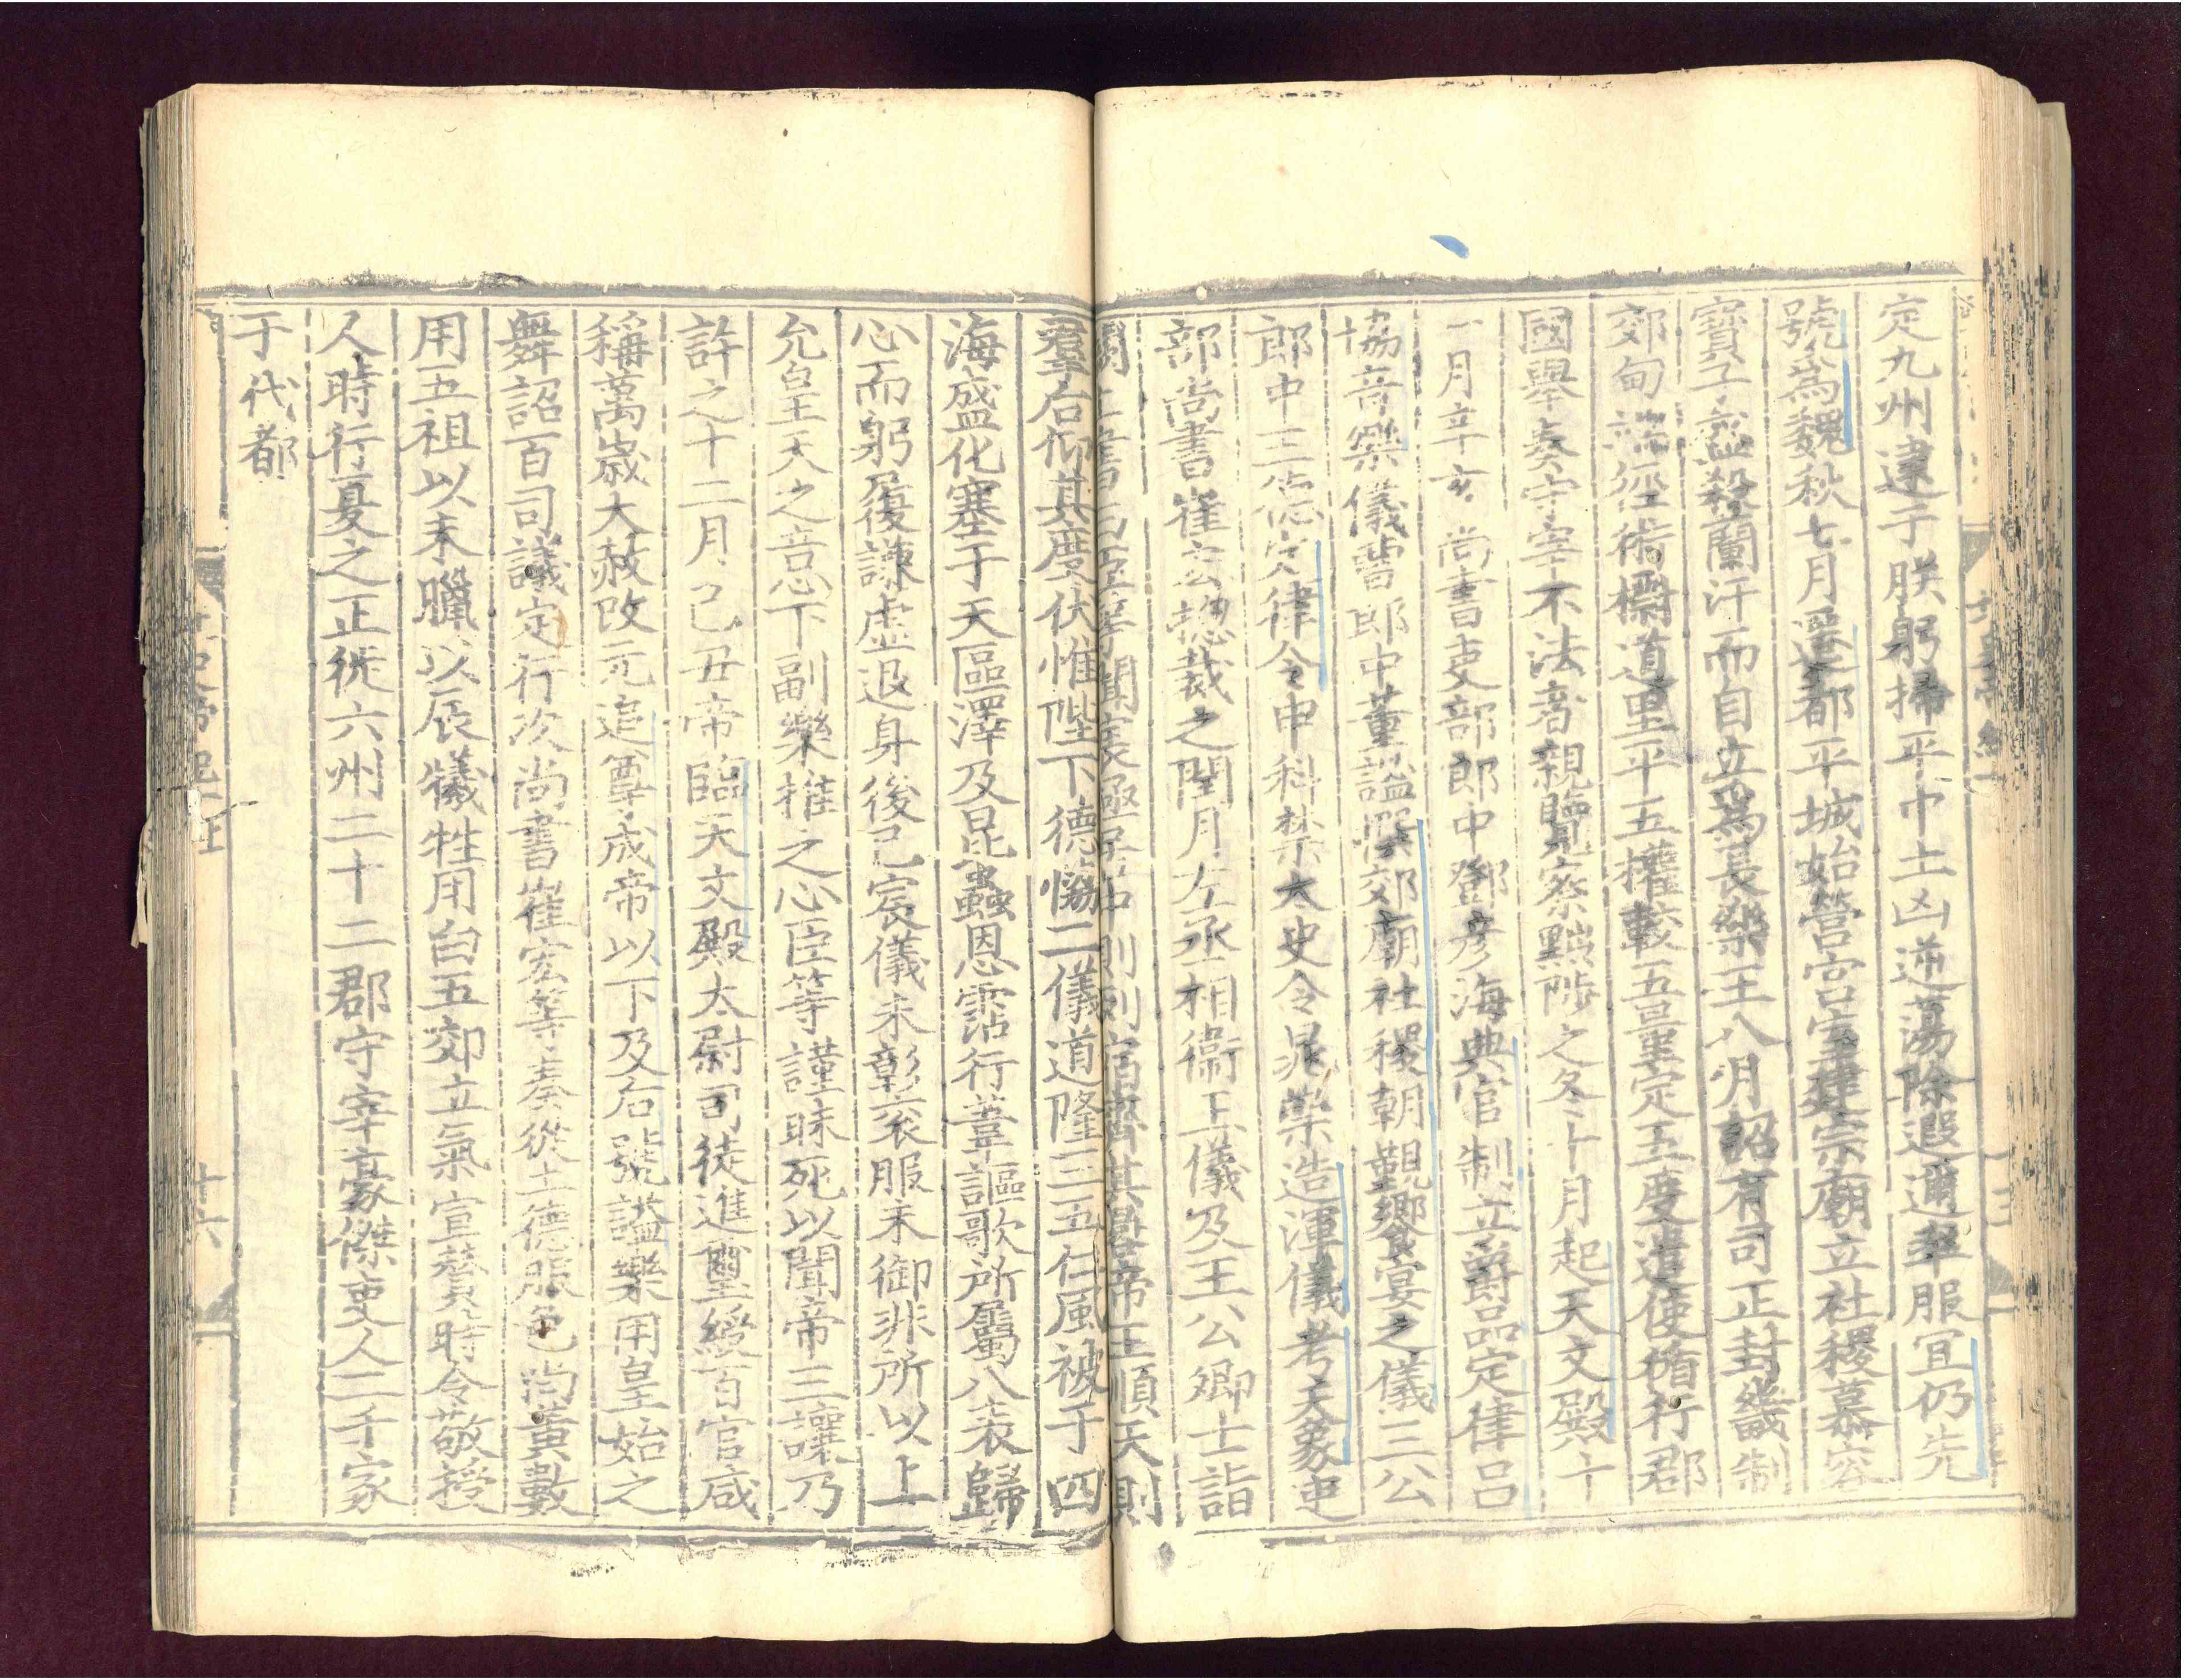 定九州逮于朕躬掃平中土凶逆蕩除遐邇率服宜仍先
號爲魏秋七月遷都平城始營宮室建宗廟立社稷慕容
寶子盛殺蘭汗而自立爲長樂王八月詔有司正封畿制
郊甸端徑術標道里平五權較五量定五度遣使循行郡
國舉奏守宰不法者親覽察黜陟之冬十月起天文殿十
一月辛亥尚書吏部郎中鄧彦海典官制立爵品定律呂
協音樂儀曹郎中董謐撰郊廟社稷朝覲饗宴之儀三公
郎中王德定律令申科禁太史令晁崇造渾儀考天象吏
部尚書崔宏總裁之閏月左丞相衞王儀及王公卿士詣
闕上書曰臣等聞宸極居中則列宿齊其晷帝王順天則
羣后仰其度伏惟陛下德協二儀道隆三五仁風被于四
海盛化塞于天區澤及昆蟲恩霑行葦謳歌所屬八表歸
心而躬履謙虛退身後己宸儀未彰衮服未御非所以上
允皇天之意下副樂推之心臣等謹昧死以聞帝三讓乃
許之十二月己丑帝臨天文殿太尉司徒進璽綬百官咸
稱萬歲大赦改元追尊成帝以下及后號謚樂用皇始之
舞詔百司議定行次尚書崔宏等奏從土德服色尚黃數
用五祖以未臘以辰犧牲用白五郊立氣宣賛時令敬授
人時行夏之正徙六州二十二郡守宰豪傑吏人二千家
于代都
十六